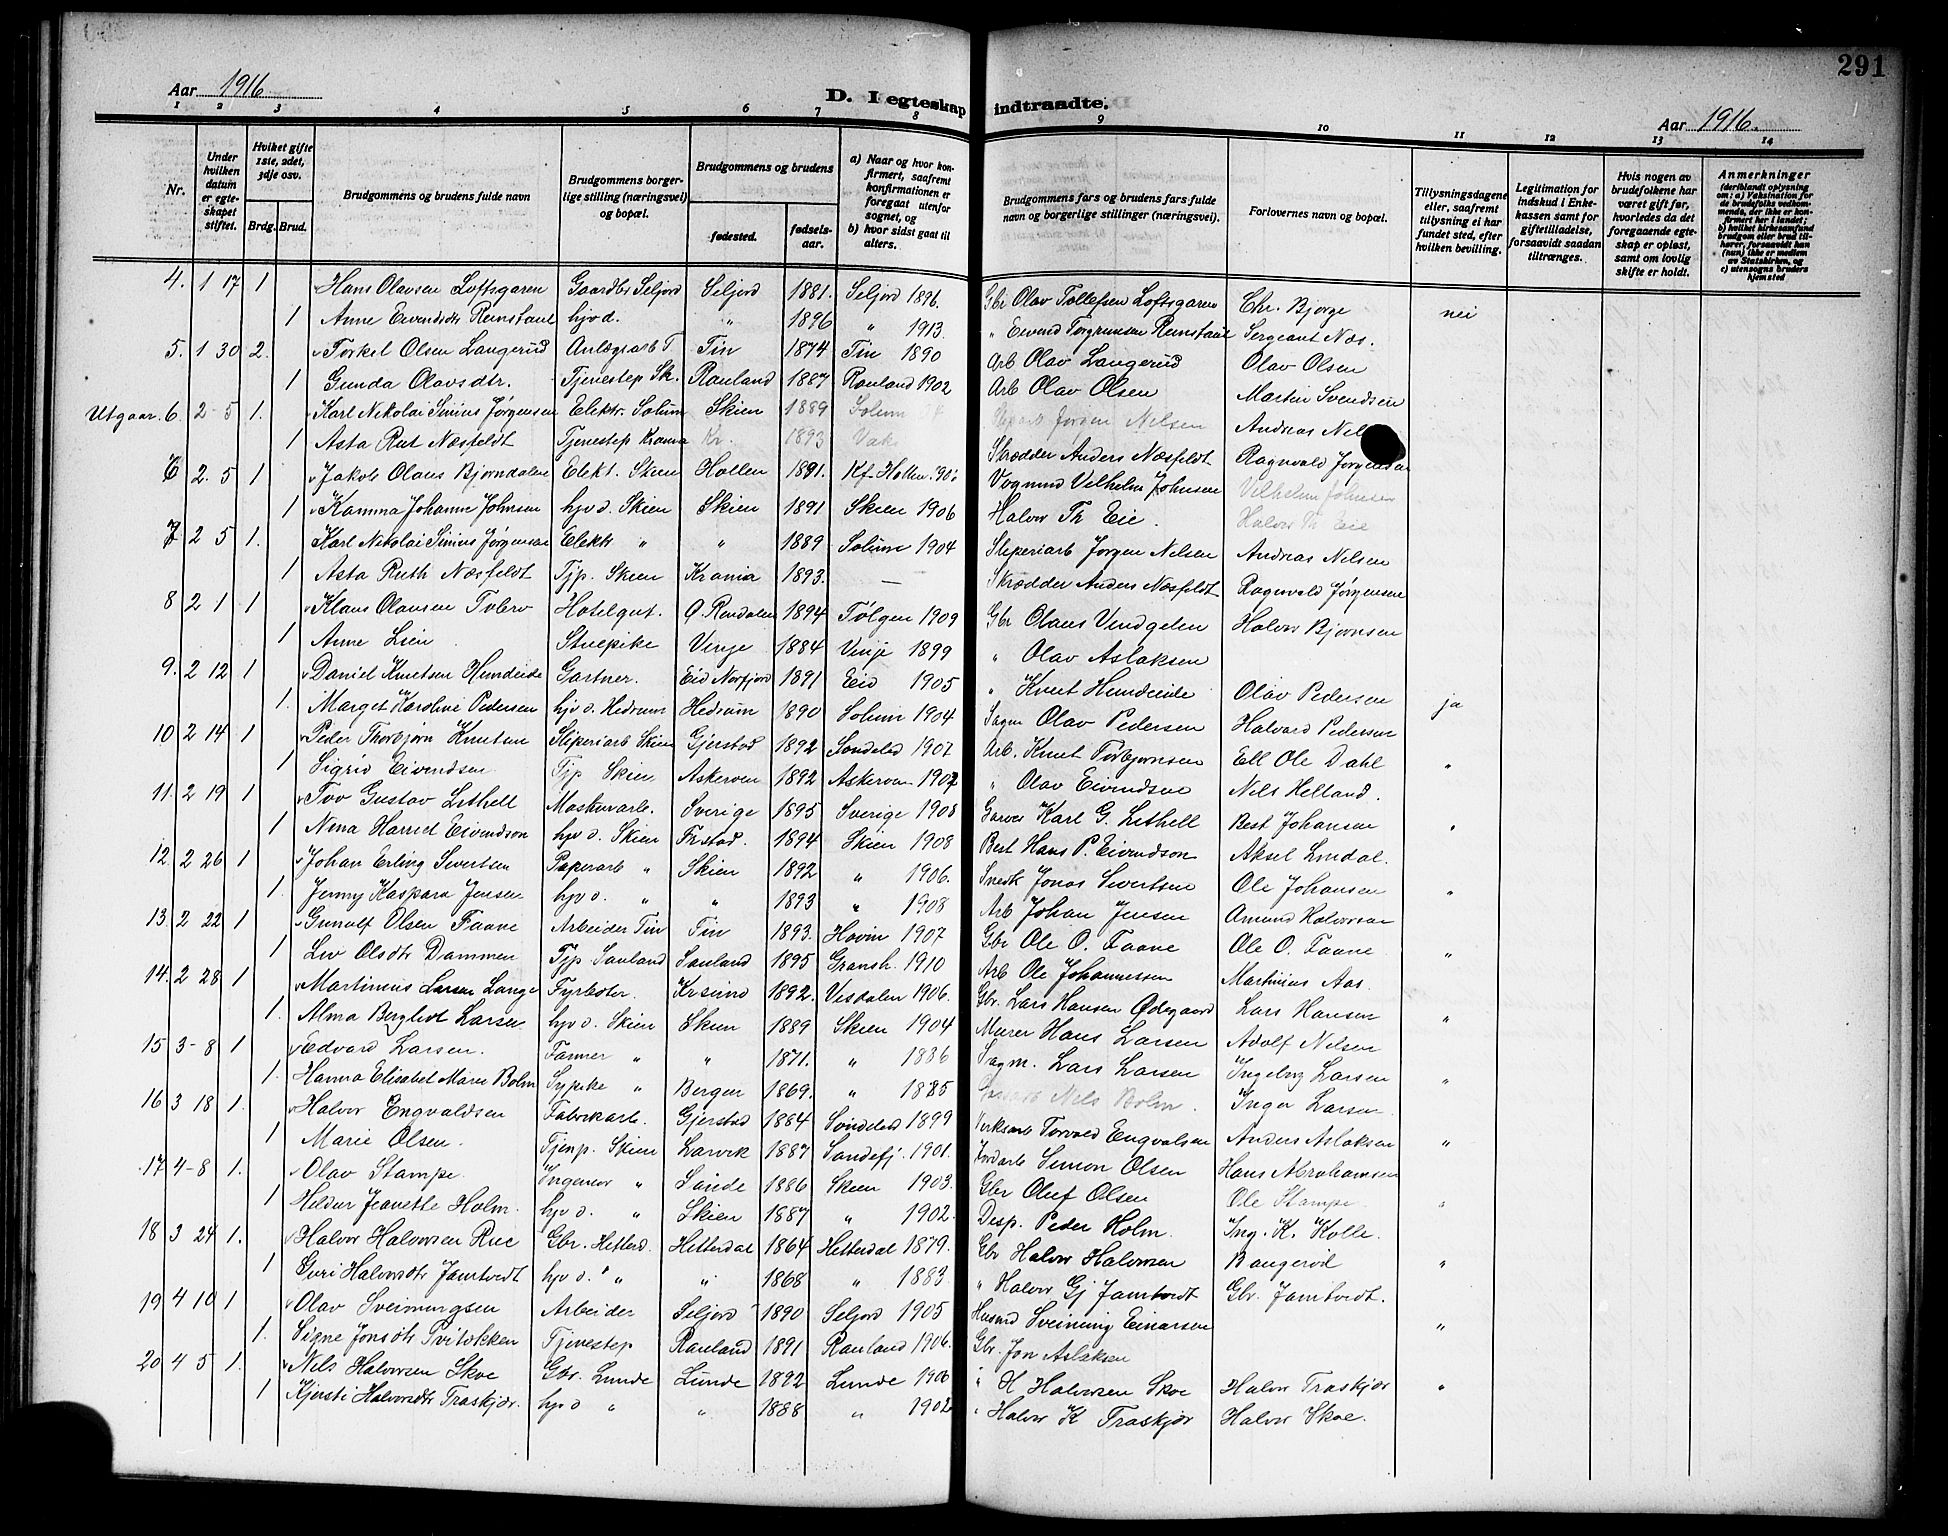 291
Aar 1916.
D. Iegteskap indtraadte.
Aar 1916.
1 2 3 4 5 6 7 8 9 10 11 12 13 14
Nr.
Under hvilken datum er egteskapet stiftet.
Hvilket gifte 1ste, 2det, 3dje osv.
Brdg. Brud.
Brudgommens og brudens fulde navn
Brudgommens borgerlige stilling (næringsvei) og bopæl.
Brudgommens og brudens
fødested.
fødselsaar.
a) Naar og hvor konfirmert, saafremt konfirmationen er foregaat utenfor sognet, og
b) hvor sidst gaat til alters.
Brudgommens fars og brudens fars fulde navn og borgerlige stillinger (næringsvei).
Forlovernes navn og bopæl.
Tillysningsdagene eller, saafremt tillysning ei har fundet sted, efter hvilken bevilling.
Legitimation for indskud i Enkekassen samt for giftetilladelse, forsaavidt saadan tiltrænges.
Hvis nogen av brudefolkene har været gift før, hvorledes da det foregaaende egteskap er opløst, samt om lovlig skifte er holdt.
Anmerkninger
(deriblandt oplysning om: a) Vaksination for de brudefolks vedkommende, der ikke er konfirmert her i landet; b) hvilket kirkesamfund brudgom eller brud tilhører, forsaavidt han (hun) ikke er medlem av Statskirken, og c) utensogns bruders hjemsted
4. 1 17 1 Hans Olavsen Loftsgaren Gaardbr Seljord Seljord 1881. Seljord 1896. Gbr Olav Tollefsen Loftsgaren Chr. Bjorge nei
1 Anne Eivendsdtr Remstaul hjvd. " 1896 " 1913. " Eivend Torgrimsen Remstaul Sergeant Næs.
5. 1 30 2. Torkel Olsen Langerud Anlægsarb T. Tin 1874 Tin 1890 Arb Olav Langerud Olav Olsen
1 Gunda Olavsdtr. Tjenestep Sk. Rauland 1887 Rauland 1902 Arb Olav Olsen Martin Svendsen
Utgaar. 6. 2-5 1. Karl Nikolai Sinius Jørgensen Elektr. Solum Skien 1889 Solum Jørgen Nelsen Andreas Nel
1 Asta Rut Næsfeldt Tjenestep Krania Kr. 1893 Vaks Skrædder Anders Næsfeldt Ragnvald Jørgensen
6 2. 5 1 Jakob Olaus Bjørndalen Elekt. Skien Hollen 1891. Kf. Hollen. Vognmd Vilhelm Johnsen Vilhelm Johnsen
1 Kamma Johanne Johnsen hjv d. Skien Skien 1891 Skien 1906 Halvor Th Eie. Halvor Th Eie
7 2 5 1. Karl Nikolai Sinius Jørgensen Elektr " " 1889 Solum 1904 Sliperiarb Jørgen Nilsen Andreas Nilsen
1 Asta Ruth Næsfeldt Tjp. Skien Krania 1893. — Skrædder Anders Næsfeldt Ragnvald Jørgensen
8 2 1 1 Klaus Olausen Tolero Hotelgut. Ø. Rendalen 1894 Tolgen 1909 Gbr Olaus Vindgelen Halvor Bjørnsen
1 Anne Lien Stuepike Vinje 1884 Vinje 1899 " Olav Aslaksen
9. 2 12 1 Daniel Knutsen Hundeide Gartner. Eid Norfjord 1891 Eid 1905 " Knut Hundeide Olav Pedersen ja
1. Marget Karoline Pedersen hjv d. Hedrum Hedrum 1890 Solum 1904 Sagm Olav Pedersen Halvard Pedersen
10 2 14 1 Peder Thorbjørn Knutsen Sliperiarb Skien Gjerstad 1892 Sondeled 1907 Arb. Knut Torbjørnsen Ell Ole Dahl "
1 Sigrid Eivendsen Tjp Skien Askeroen 1892 Askeroen 1907 " Olav Eivendsen Nils Helland.
11. 2 19 1 Tov Gustav Lithell Maskinarb. Sverige 1895 Sverige 1908 Garver Karl G. Lithell Best Johansen "
1 Nina Harriet Eivendson hjv d. Skien Frstad. 1894 Skien 1908 Best Hans P. Eivendson Aksel Lindal.
12. 2 26 1 Johan Erling Sivertsen Papirarb " Skien 1892 " 1906. Snedk Jonas Sivertsen Ole Johansen "
1. Jenny Kaspara Jensen hjv d. " " 1893 " 1908 Arb Johan Jensen Amund Halvorsen
13. 2 22 1 Gunulf Olsen Faane Arbeider Tin Tin 1893. Hovin 1907 Gbr Ole O. Faane Ole O. Faane "
1 Liv Olsdtr Dammen Tjp. Sauland Sauland 1895 Gransh. 1910 Arb Ole Johannessen Martinius Aas.
14. 2 28 1 Martinius Larsen Lange Fyrboter. Krsund 1892. Visdalen 1906. Gbr. Lars Hansen Ødegaard Lars Hansen "
1. Alma Bergliot Larsen hjv d. Skien Skien 1889 Skien 1904 Murer Hans Larsen Adolf Nelsen
15 3-8 1 Edvard Larsen. Farmer " " 1871. " 1886 Sagm. Lars Larsen Ingeborg Larsen "
1. Hanna Elisabet Marie Bolm Sypike " Bergen 1869. " 1885 Nils Bolm. Inger Larsen
16 3 18 1. Halvor Engvaldsen Fabrikarb. Gjerstad 1884 Sondeled 1899 Verksarb Torvald Engvalsen Anders Aslaksen "
1 Marie Olsen. Tjenp. Skien Larvik 1887 Sandefj. 1901. Jordarb Simon Olsen Hans Abrahamsen
17 4-8 1. Olav Stampe. Ingeniør " Saude 1886 Skien 1903. Gbr Oluf Olsen Ole Stampe "
1 Heldur Jeanette Holm. hjv d. " Skien 1887 " 1902. Desp. Peder Holm. Ing. K. Kolle.
18 3 24 1. Halvor Halvorsen Rue Gbr. Hitterd. Hitterdal 1864 Hitterdal 1879. Gbr Halvor Halvorsen Bangerød "
1 Guri Halvorsdtr Jamtvedt hjv d. " " 1868 " 1883 " Halvor Gj Jamtvedt Gbr. Jamtvedt.
19 4 10 1 Olav Sveinungsen Arbeider Seljord 1890 Seljord 1905 Husmd Sveinung Einarsen "
1. Signe Jonsdtr Svitækken Tjenestep Rauland 1891 Rauland 1906. Gbr. Jon Aslaksen
20 4 5 1. Nils Halvorsen Skoe Gbr. Lunde Lunde 1892 Lunde 1906 " H Halvorsen Skoe Halvor Traskjær "
1 Kjersti Halvorsdtr Traskjær. hjv d " " 1888 " 1902 " Halvor K Traskjær Halvor Skoe.